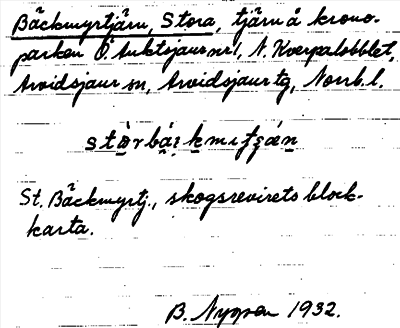 Bäckmyrtjärn, Stora, tjärn å krono-
parken Ö. Auktsjaur nr 1, N. Kverpalobblet,
Arvidsjaur sn, Arvidsjaur tg, Norrb. l.
St. Bäckmyrtj., skogsrevirets block-
karta.
B. Nygren 1932.